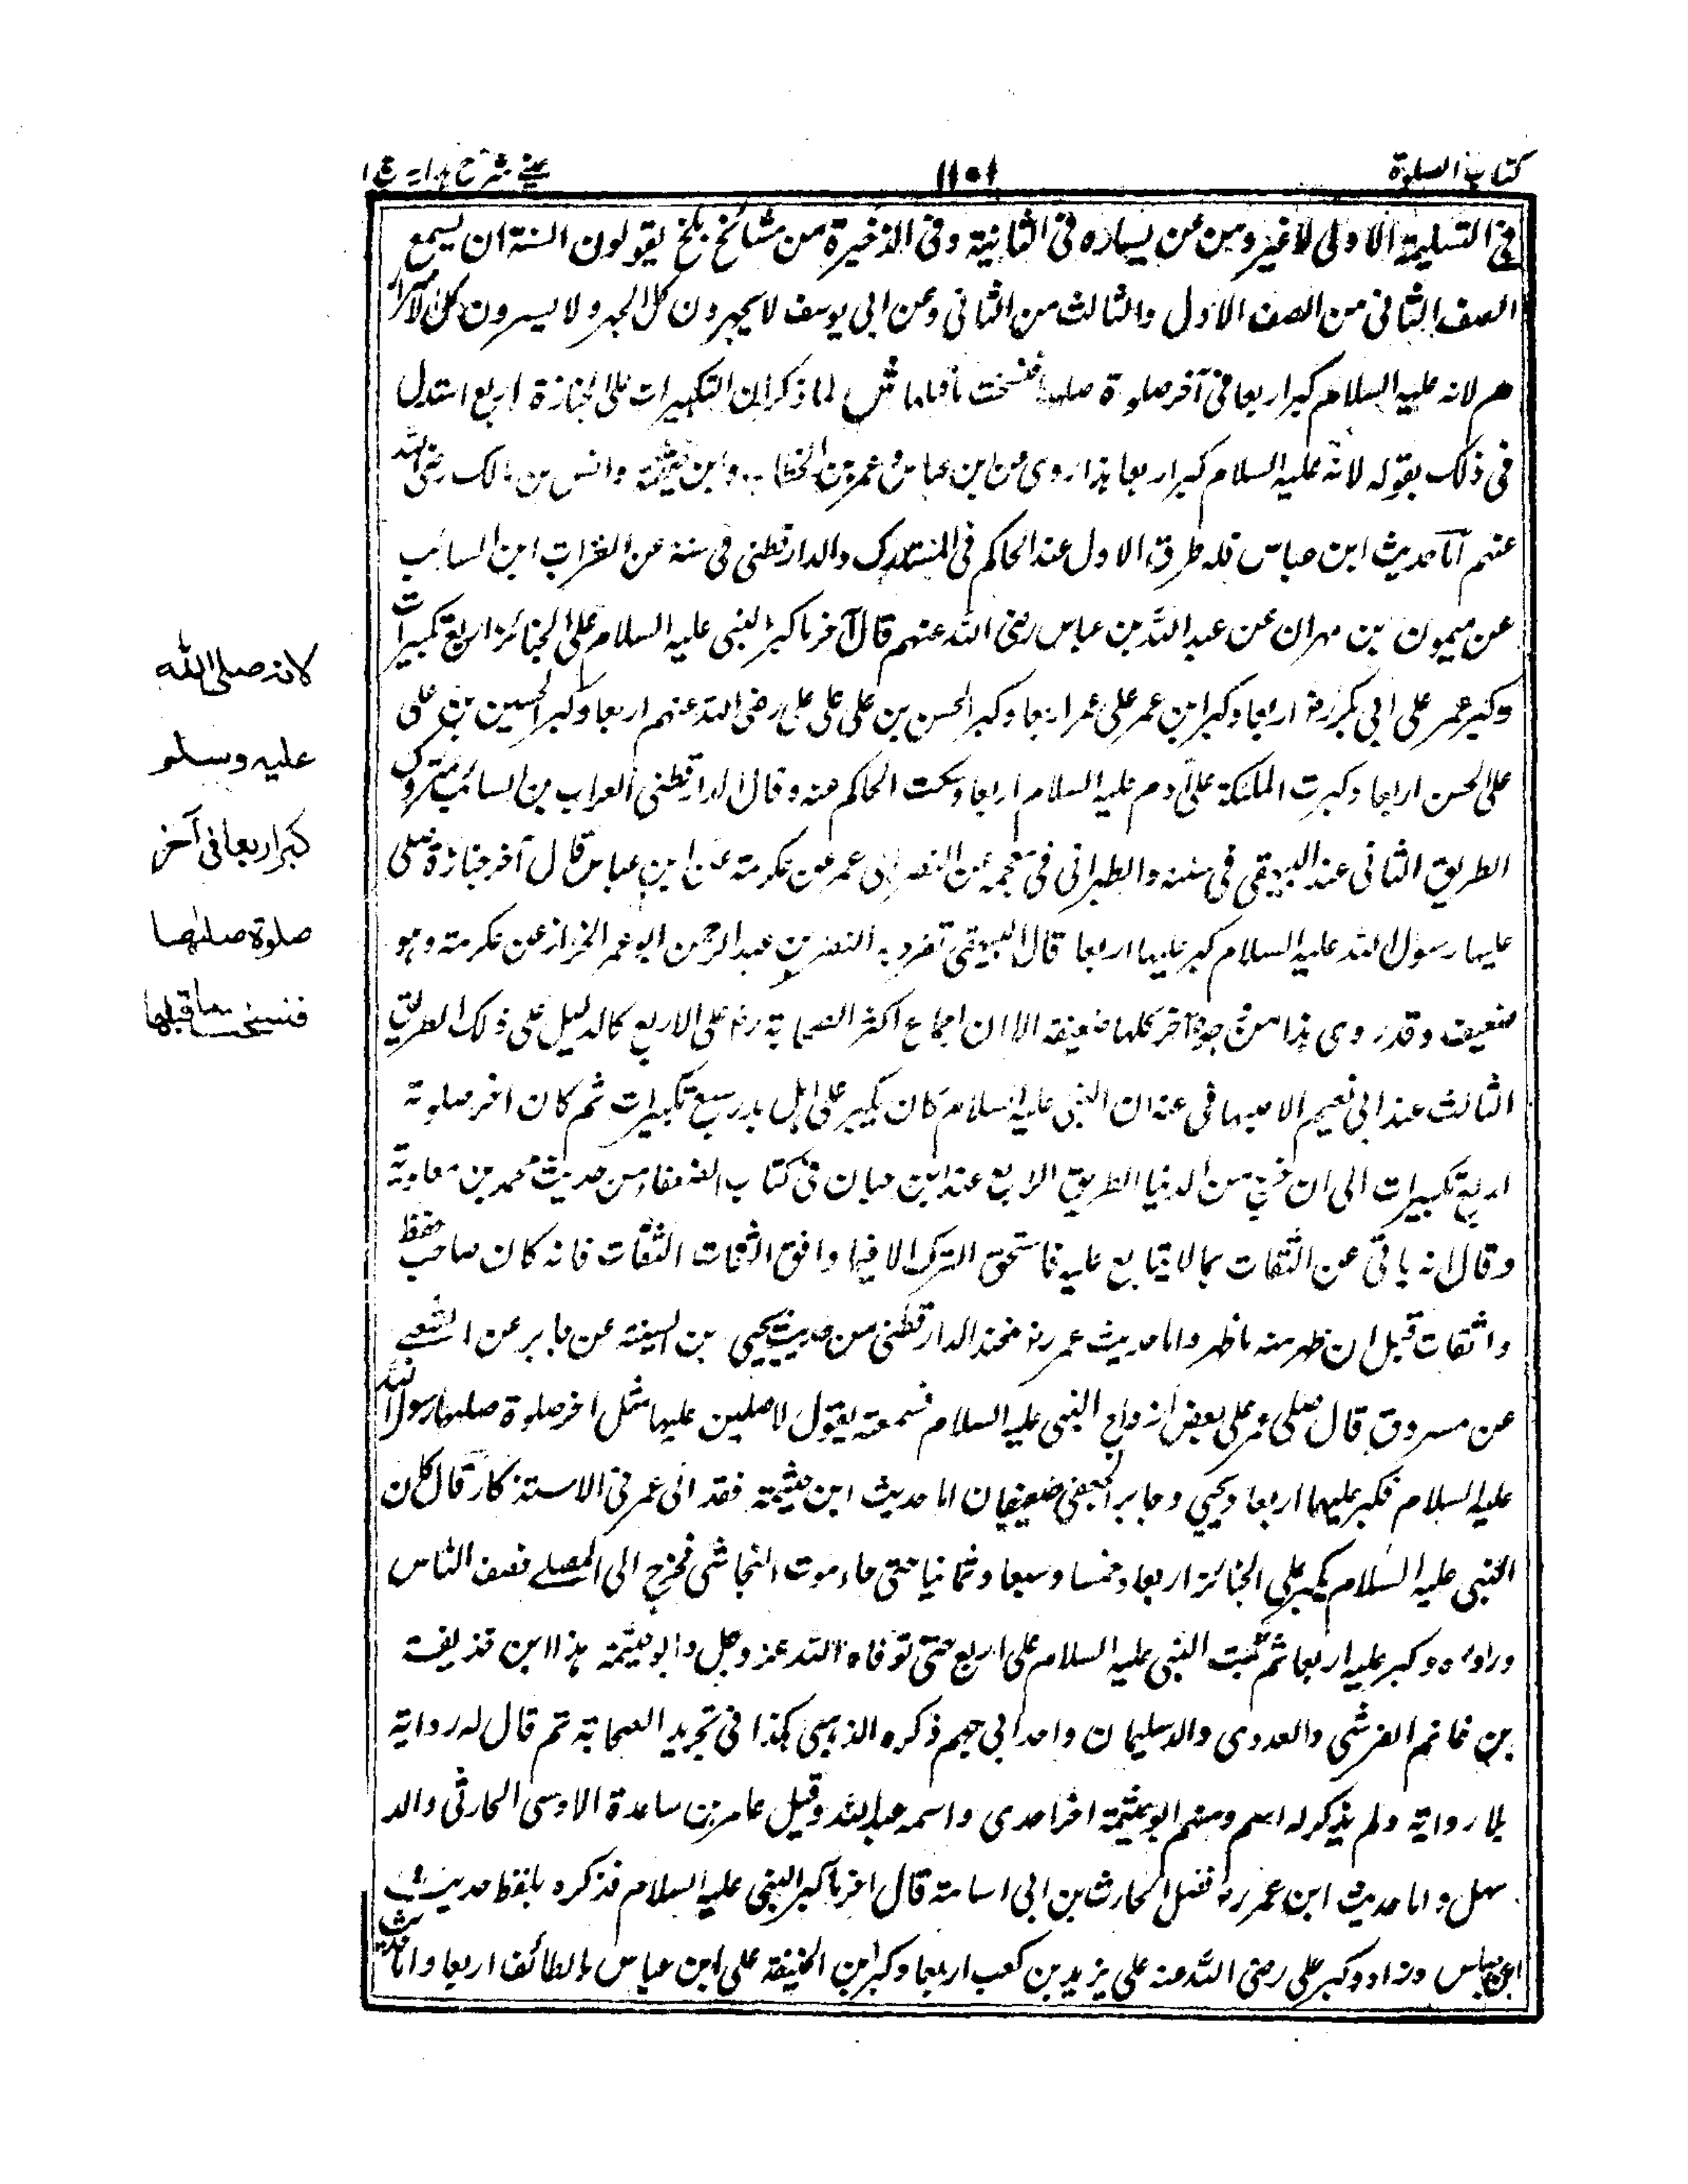 كتاب الصلوة
١١٠١
عينى شرح هدايه ج ١
فى التسليمة الاولى لا غير ومن عن يساره فى الثانية وفى الذخيرة من مشائخ بلخ يقولون السنة ان يسمع
الصف الثانى من الصف الاول والثالث من الثانى وعن ابى يوسف لا يجهرون كل الجهر ولا يسرون كل الاسرار
هم لانه عليه السلام كبر اربعا فى آخر صلوة صلها فنسخت ما قبلها ش لما ذكر ان التكبيرات على الجنازة اربع استدل
فى ذلك بقوله لانه عليه السلام كبر اربعا هذا روى عن ابن عباس وعمر بن الخطاب وابن حثمة وانس بن مالك رضى الله
عنهم اما حديث ابن عباس فله طرق الاول عند الحاكم فى المستدرك والدارقطنى فى سننه عن الفرات ابن السائب
عن ميمون بن مهران عن عبد الله بن عباس رضى الله عنهم قال آخر ما كبر النبى عليه السلام على الجنائز اربع تكبيرات
وكبر عمر على ابى بكر رض اربعا وكبر ابن عمر على عمر اربعا وكبر الحسن بن على على على رضى الله عنهم اربعا وكبر الحسين بن على
على الحسن اربعا وكبرت الملئكة على آدم عليه السلام اربعا وسكت الحاكم عنه وقال الدارقطنى الفرات بن السائب متروك
الطريق الثانى عند البيهقى فى سننه والطبرانى فى معجمه عن النضر ابى عمر عن عكرمة عن ابن عباس قال آخر جنازة صلى
عليها رسول الله عليه السلام كبر عليها اربعا قال البيهقى تفرد به النضر بن عبد الرحمن ابو عمر الخزاز عن عكرمة وهو
ضعيف وقد روى هذا من وجوه اخر كلها ضعيفة الا ان اجماع اكثر الصحابة رض على الاربع كالدليل على ذلك الطريق
الثالث عند ابى نعيم الاصبهانى عنه ان النبى عليه السلام كان يكبر على اهل بدر سبع تكبيرات ثم كان اخر صلوته
اربع تكبيرات الى ان خرج من الدنيا الطريق الرابع عند ابن حبان فى كتاب الضعفاء من حديث محمد بن معاوية
وقال انه ياتى عن الثقات بما لا يتابع عليه فاستحق الترك الا فيها وافق الثقات الثقات فانه كان صاحب حفظ
واثقات قبل ان ظهر منه ما ظهر واما حديث عمر رض فعند الدارقطنى من حديث يحيى بن انيسة عن جابر عن الشعبى
عن مسروق قال صلى عمر على بعض ازواج النبى عليه السلام فسمعته يقول لاصلين عليها مثل اخر صلوة صلها رسول الله
عليه السلام فكبر عليها اربعا ويحيى وجابر الجعفى ضعيفان اما حديث ابن حثمة فقد ابى عمر فى الاستذكار قال كان
النبى عليه السلام يكبر على الجنائز اربعا وخمسا وسبعا وثمانيا حتى جاء موت النجاشى فخرج الى المصلى فصف الناس
وراءه وكبر عليه اربعا ثم ثبت النبى عليه السلام على اربع حتى توفاه الله عز وجل وابو حثمة هذا ابن حذيفة
بن غانم القرشى والعدوى والد سليمان واحد ابى جهم ذكره الذهبى هكذا فى تجريد الصحابة ثم قال له رواية
بلا رواية ولم يذكر له اسم ومنهم ابو حثمة اخر احدى واسمه عبد الله وقيل عامر بن ساعدة الاوسى الحارثى والد
سهل واما حديث ابن عمر رض فعند الحارث بن ابى اسامة قال اخر ما كبر النبى عليه السلام فذكره بلفظ حديث
ابن عباس وزاد وكبر على رضى الله عنه على يزيد بن كعب اربعا وكبر ابن الحنيفة على ابن عباس بالطائف اربعا واما حديث
لانه صلى الله
عليه وسلم
كبر اربعا فى آخر
صلوة صلها
فنسخت ما قبلها